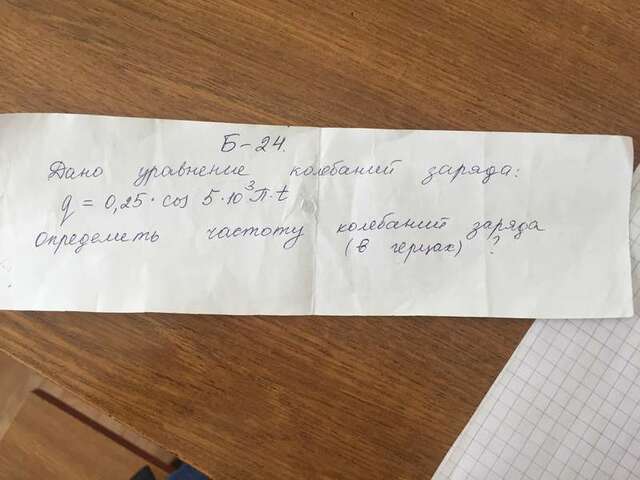 Б-24.
Дано уравнение колебаний заряда:
q = 0,25·cos 5·10³П·t
Определить частоту колебаний заряда
(в герцах) ?